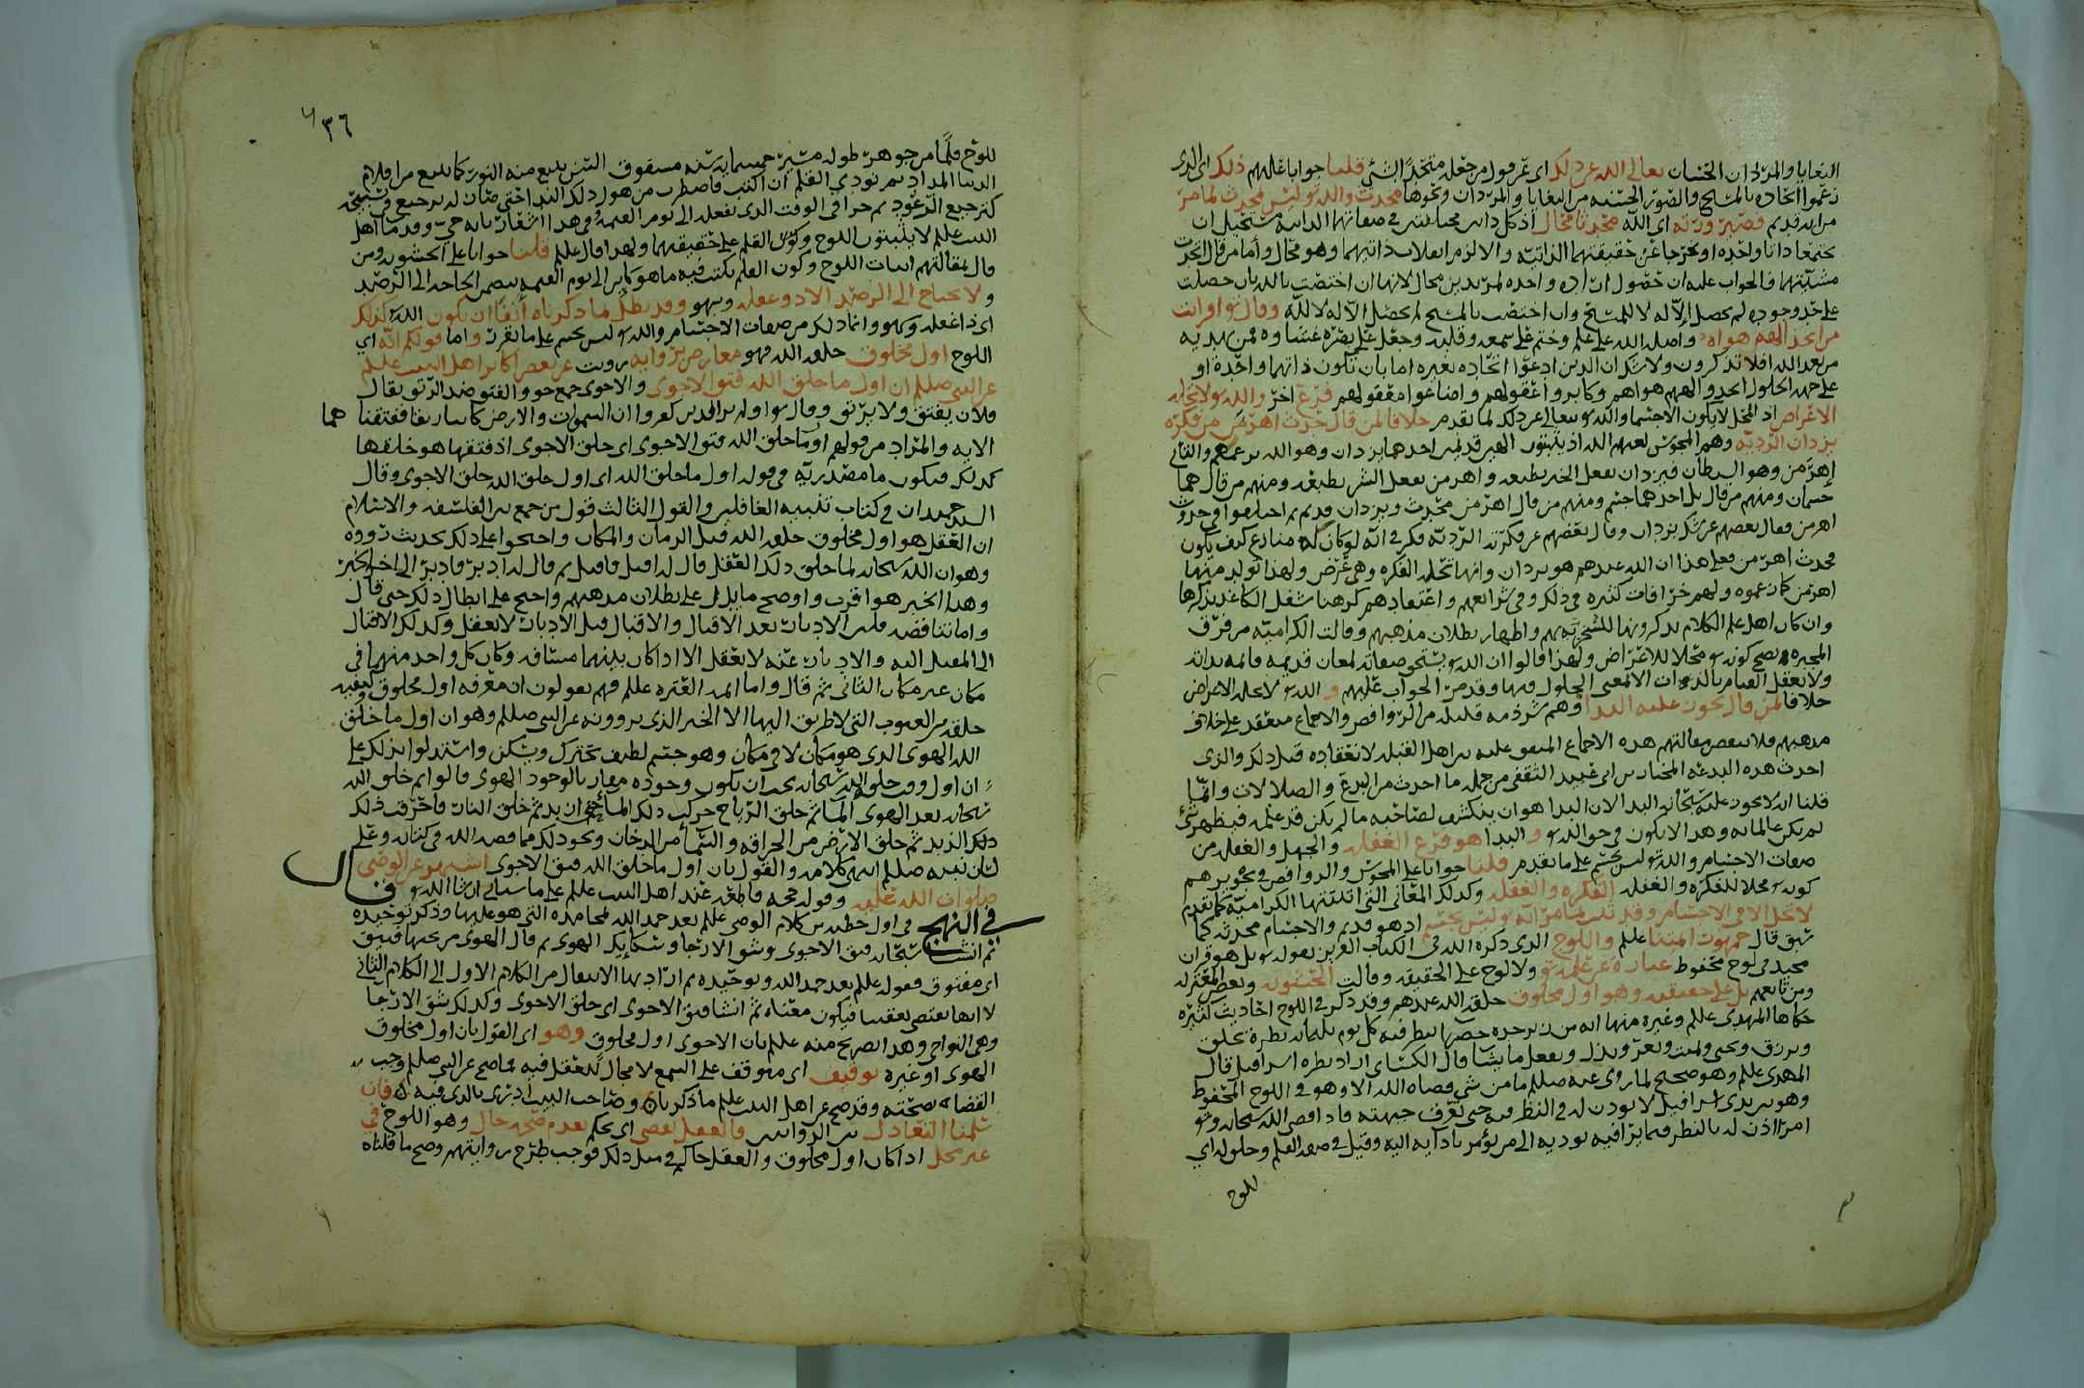 البغايا والمردان الحسان تعالى الله عن ذلك اي عن قول من جعله متحدا بشيء قلنا جوابا عليهم ذلك اي الذي
زعموا اتحاده بالمسيح والصور الحسنة من البغايا والمردان ونحوها محدث والله تعالى ليس بمحدث لما مر
من انه قديم فصيرورته اي الله محدثا محال اذ كل ذاتين مختلفتين في صفاتهما الذاتية يستحيل ان
يجتمعا ذاتا واحدة او يخرجا عن حقيقتهما الذاتية والا لزم انقلاب ذاتيهما وهو محال واما من قال اتحدت
مشيتهما فالجواب عليه ان حصول ارادة واحدة لمريدين محال لانها ان اختصت بالله بان حصلت
على حد وجوده لم يحصل الا له لا للمسيح وان اختصت بالمسيح لم تحصل الا له لا لله وقال تعالى افرايت
من اتخذ الهه هواه واضله الله على علم وختم على سمعه وقلبه وجعل على بصره غشاوة فمن يهديه
من بعد الله افلا تذكرون ولا شك ان الذين ادعوا اتحاده بغيره اما بان تكون ذاتهما واحدة او
على جهة الحلول اتخذوا الههم هواهم وكابروا عقولهم واضاعوا معقولهم فرع اخر والله تعالى لا تحله
الاعراض اذ المحل لا يكون الا جسما والله تعالى يتعالى عن ذلك لما تقدم خلافا لمن قال حدث اهرمن من فكرة
يزدان الردية وهم المجوس لعنهم الله اذ يثبتون الهين قديمين احدهما يزدان وهو الله بزعمهم والثاني
اهرمن وهو الشيطان فيزدان يفعل الخير بطبعه واهرمن يفعل الشر بطبعه ومنهم من قال هما
جسمان ومنهم من قال بل احدهما جسم ومنهم من قال اهرمن محدث ويزدان قديم ثم اختلفوا في حدوث
اهرمن فقال بعضهم عن شك يزدان وقال بعضهم عن فكرته الردية فكر في انه لو كان له منازع كيف يكون
فحدث اهرمن فعلى هذا ان الله عندهم هو يزدان وانها تحله الفكرة وهي عرض ولهذا تولد منها
اهرمن كما زعموه ولهم خرافات كثيرة في ذلك وفي شرائعهم واعتقادهم كرهنا شغل الكاغد بذكرها
وان كان اهل علم الكلام يذكرونها للسخرية بهم واظهار بطلان مذهبهم وقالت الكرامية من فرق
المجبرة يصح كونه تعالى محلا للاعراض ولهذا قالوا ان الله تعالى يستحق صفاته لمعان قديمة قائمة بذاته
ولا يعقل القيام بالذوات الا لمعنى الحلول فيها وقد مر الجواب عليهم و الله تعالى لا تحله الاعراض
خلافا لمن قال يجوز عليه البدا وهم شرذمة قليلة من الروافض والاجماع منعقد على خلاف
مذهبهم فلا ينقض مقالتهم هذه الاجماع المتفق عليه بين اهل القبلة لانعقاده قبل ذلك والذي
احدث هذه البدعة المختار بن ابي عبيد الثقفي من جملة ما احدث من البدع والضلالات وانما
قلنا انه لا يجوز عليه سبحانه البدا لان البدا هو ان ينكشف لصاحبه ما لم يكن قد علمه فيظهر شيء
لم يكن عالما به وهذا لا يكون في حق الله تعالى و البدا هو فرع الغفلة والجهل والغفلة من
صفات الاجسام والله تعالى ليس بجسم على ما تقدم قلنا جوابا على المجوس والروافض في تجويزهم
كونه تعالى محلا للفكرة والغفلة الفكرة والغفلة وكذلك المعاني التي اثبتتها الكرامية كما تقدم
لا تحل الا في الاجسام وقد ثبت بما مر انه تعالى ليس بجسم اذ هو قديم والاجسام محدثة كما
سبق قال جمهور ائمتنا عليلم واللوح الذي ذكره الله في الكتاب العزيز بقوله تعالى بل هو قران
مجيد في لوح محفوظ عبارة عن علمه تعالى ولا لوح على الحقيقة وقالت الحشوية وبعض المعتزلة
ومن تابعهم بل على حقيقته وهو اول مخلوق خلقه الله عندهم وقد ذكر في اللوح احاديث كثيرة
حكاها المهدي عليلم وغيره منها انه من زبرجدة خضرا ينظر فيه كل يوم ثلثمائة نظرة يخلق
ويرزق ويحيي ويميت ويعز ويذل ويفعل ما يشا قال الكسائي اراد نظرة اسرافيل قال
المهدي عليلم وهو صحيح لما روي عنه صللم ما من شي قضاه الله الا وهو في اللوح المحفوظ
وهو بين يدي اسرافيل لا يؤذن له في النظر فيه حتى يعرق جبهته فاذا قضى الله سبحانه وتعالى
امرا اذن له بالنظر فما يرا فيه يوديه الى من يؤمر بادايه اليه وقيل في صفة القلم وخلق له اي
للوح
٣٦
للوح قلما من جوهر طوله مسيرة خمسماية سنة مشقوق السن ينبع منه النور كما ينبع من اقلام
الدنيا المداد ثم نودي القلم ان اكتب فاضطرب من هول ذلك الندا حتى صار له ترجيع في تسبيحه
كترجيع الرعود ثم جرا في الوقت الذي يفعله الى يوم القيمة وفي هذا اشعار بانه حي وقدماء اهل
البيت عليلم لا يثبتون اللوح وكون القلم على حقيقتهما ولهذا قال عليلم قلنا جوابا على الحشوية ومن
قال بمقالتهم اثبات اللوح وكون القلم يكتب فيه ما هو كاين الى يوم القيمة يتضمن الحاجة الى الرصد
و لا يحتاج الى الرصد الا ذو غفلة وسهو وقد بطل بما ذكرناه انفا ان يكون الله كذلك
اي ذا غفلة وسهو وانما ذلك من صفات الاجسام والله تعالى ليس بجسم على ما تقرر واما قولكم انه اي
اللوح اول مخلوق خلقه الله فهو معارض برواية رويت عن بعض اكابر اهل البيت عليلم
عن النبي صللم ان اول ما خلق الله فتق الاجوى والاجوى جمع جو والفتق ضد الرتق يقال
فلان يفتق ولا يرتق وقال تعالى اولم ير الذين كفروا ان السموات والارض كانتا رتقا ففتقناهما
الاية والمراد من قولهم اول ما خلق الله فتق الاجوى اي خلق الاجوى اذ فتقها هو خلقها
كذلك فتكون ما مصدرية في قوله اول ما خلق الله اي اول خلق الله خلق الاجوى وقال
السيد حميدان في كتاب تنبيه الغافلين والقول الثالث قول من جمع بين الفلسفة والاسلام
ان العقل هو اول مخلوق خلقه الله قبل الزمان والمكان واحتجوا على ذلك بحديث رووه
وهو ان الله سبحانه لما خلق ذلك العقل قال له اقبل فاقبل ثم قال له ادبر فادبر الى اخر الخبر
وهذا الخبر هو اقرب واوضح ما يدل على بطلان مذهبهم واحتج على ابطال ذلك حتى قال
واما تناقضه فلان الادبار بعد الاقبال والاقبال قبل الادبار لا يعقل وكذلك الاقبال
الى المقبل اليه والادبار عنه لا يعقل الا اذا كان بينهما مسافة وكان كل واحد منهما في
مكان غير مكان الثاني ثم قال واما ائمة العترة عليلم فهم يقولون ان معرفة اول مخلوق وكيفية
خلقه من الغيوب التي لا طريق اليها الا الخبر الذي يروونه عن النبي صللم وهو ان اول ما خلق
الله الهوى الذي هو مكان لا في مكان وهو جسم لطيف يتحرك ويسكن واستدلوا بذلك على
ان اول وقت خلقه الله سبحانه يجب ان يكون وجوده مقارنا لوجود الهوى قالوا ثم خلق الله
سبحانه بعد الهوى الما ثم خلق الرياح حركت ذلك الما حتى ازبد ثم خلق النار فاحرقت ذلك
ذلك الزبد ثم خلق الارض من الحراقة والسما من الدخان ونحو ذلك مما قصه الله في كتابه وعلى
لسان نبيه صللم انتهى كلامه والقول بان اول ما خلق الله فتق الاجوى اشتهر عن الوصي
صلوات الله عليه وقوله حجة قاطعة عند اهل البيت عليلم على ما سياتي ان شا الله تعالى قال
في النهج في اول خطبه من كلام الوصي عليلم بعد حمد الله لمحامده التي هو عليها وذكر توحيده
ثم انشا سبحانه فتق الاجوى وشق الارجا وسكايك الهوى ثم قال الهوى من تحتها فتيق
اي مفتوق فقوله عليلم بعد حمد الله وتوحيده ثم اراد بها الانتقال من الكلام الاول الى الكلام الثاني
لا انها تقتضي تعقيبا فيكون معناه ثم انشا فتق الاجوى اي خلق الاجوى وكذلك شق الارجا
وهي النواحي وهذا تصريح منه عليلم بان الاجوى اول مخلوق وهو اي القول بان اول مخلوق
الهوى او غيره توقيف اي متوقف على السمع لا مجال للعقل فيه فما صح عن النبي صللم وجب
القضا بصحته وقد صح عن اهل البيت عليلم ما ذكرناه وصاحب البيت ادرى بالذي فيه فان
سلمنا التعادل بين الروايتين فالعقل يقضي اي يحكم بعدم صحة حال وهو اللوح في
غير محل اذا كان اول مخلوق والعقل حاكم في مثل ذلك فوجب طرح روايتهم وصح ما قلناه